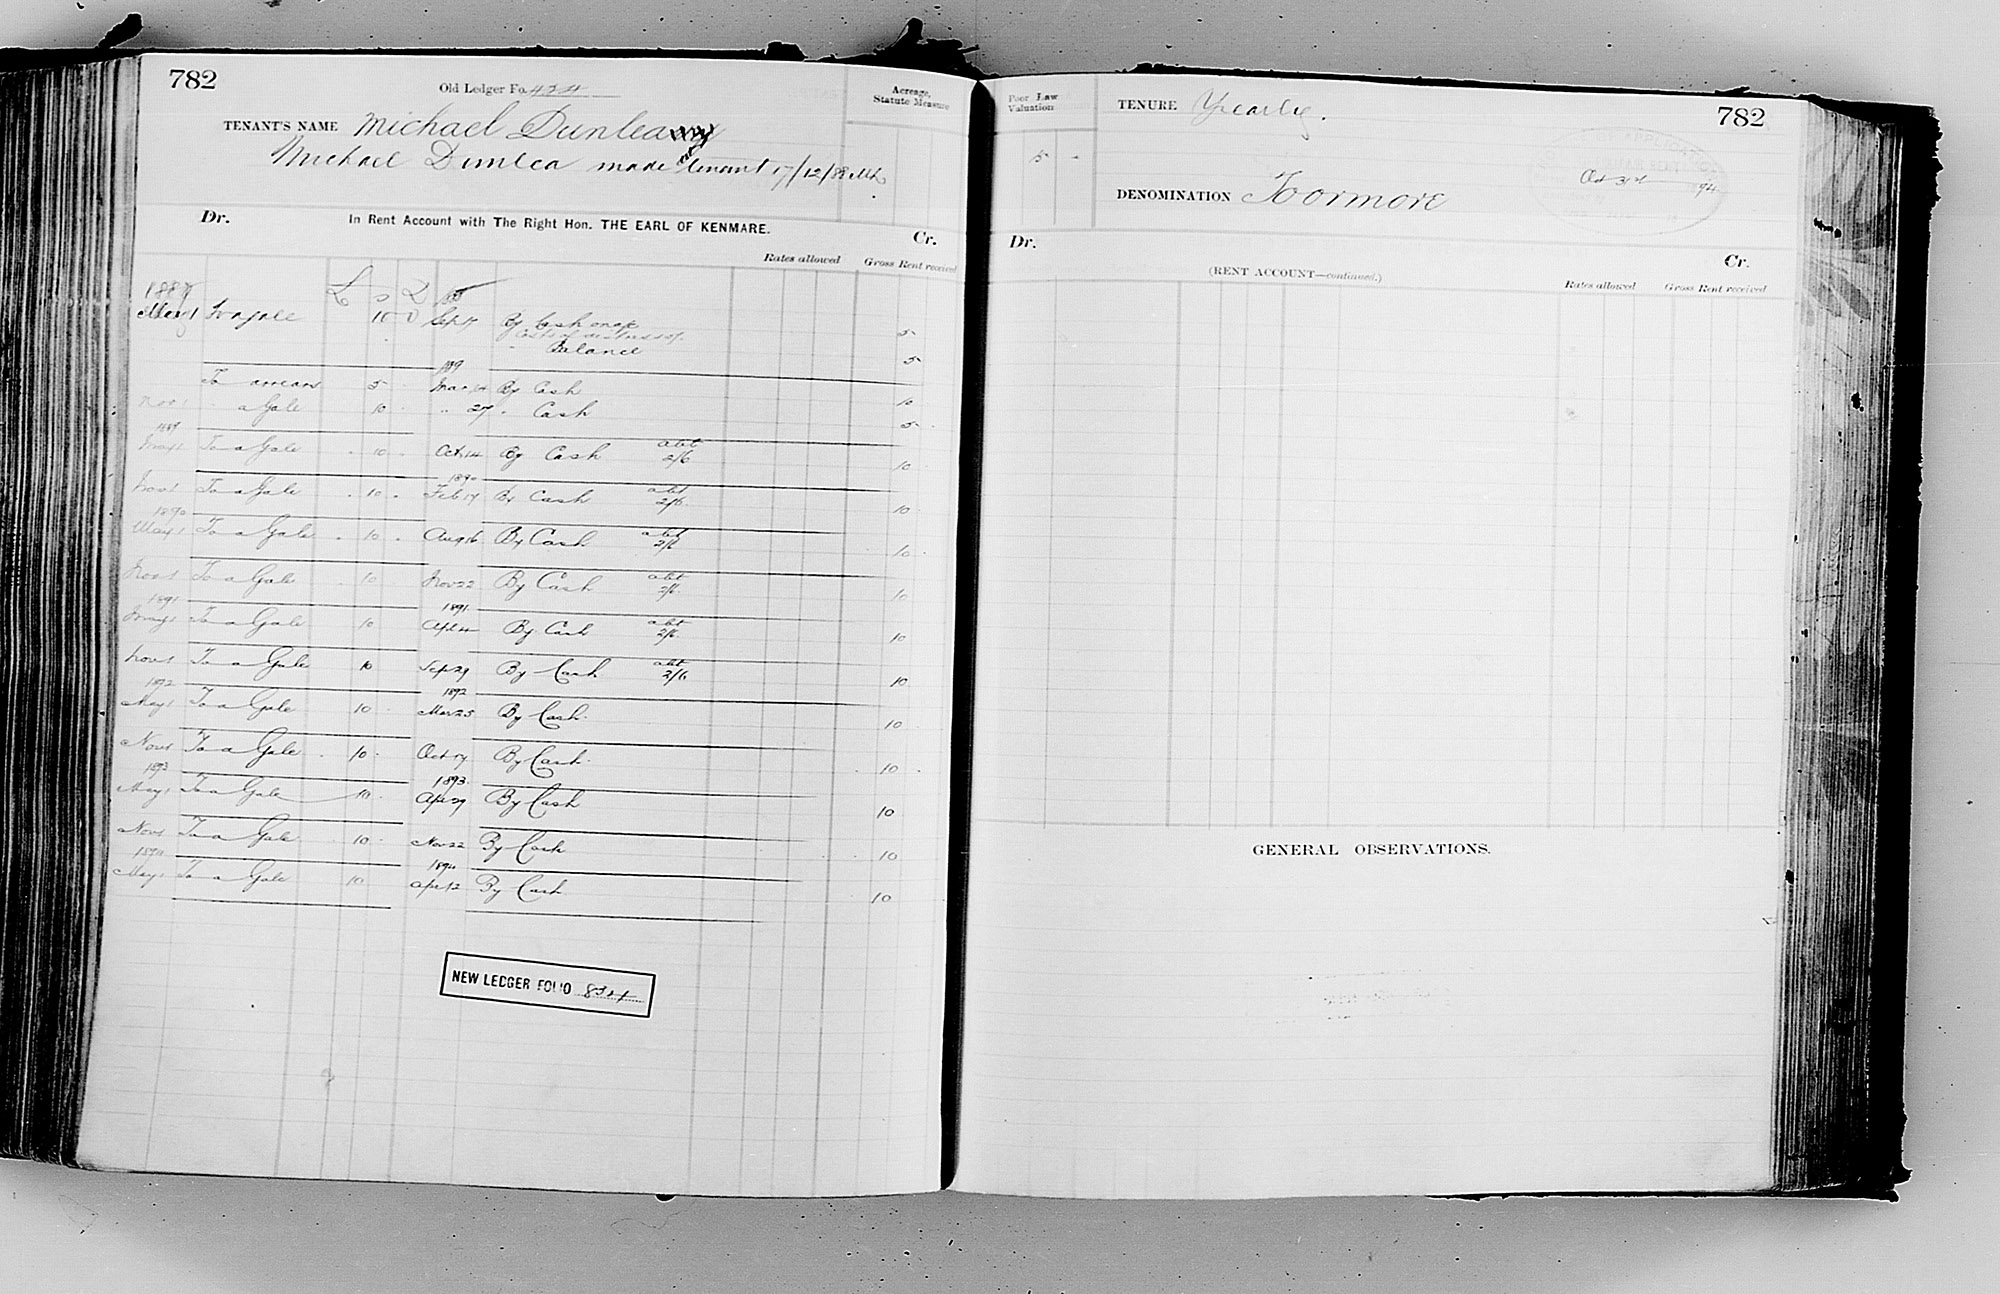 782
Old Ledger Fo. 424
TENANT'S NAME Michael Dunlea
Michael Dunlea made tenant 17/12/88
Acreage, Statute Measure
Dr.
In Rent Account with The Right Hon. THE EARL OF KENMARE.
Cr.
Rates allowed
Gross Rent received
£ s D
May 1 To a gale 10 0 Sep 17 By Cash 5
Balance 5
1889
To arrears 5 Mar By Cash 10
Nov 1 " a Gale 10 " 27 " Cash 5
1889
May 1 To a Gale 10 Oct 14 By Cash abt 2/6 10
1890
Nov 1 To a Gale 10 Feb 17 By Cash abt 2/6 10
1890
May 1 To a Gale 10 Aug 16 By Cash abt 2/6 10
Nov 1 To a Gale 10 Nov 22 By Cash abt 2/6 10
1891 1891
May 1 To a Gale 10 Apl 4 By Cash abt 2/6 10
Nov 1 To a Gale 10 Sep 29 By Cash abt 2/6 10
1892 1892
May 1 To a Gale 10 Mar 25 By Cash 10
Nov 1 To a Gale 10 Oct 17 By Cash 10
1893 1893
May 1 To a Gale 10 Apr 29 By Cash 10
Nov 1 To a Gale 10 Nov 22 By Cash 10
1894 1894
May 1 To a Gale 10 Apr 12 By Cash 10
NEW LEDGER FOLIO 834
Poor Law Valuation
5 -
TENURE Yearly.
782
DENOMINATION Toormore
Oct 31st 94
Dr.
(RENT ACCOUNT—continued.)
Cr.
Rates allowed
Gross Rent received
GENERAL OBSERVATIONS.